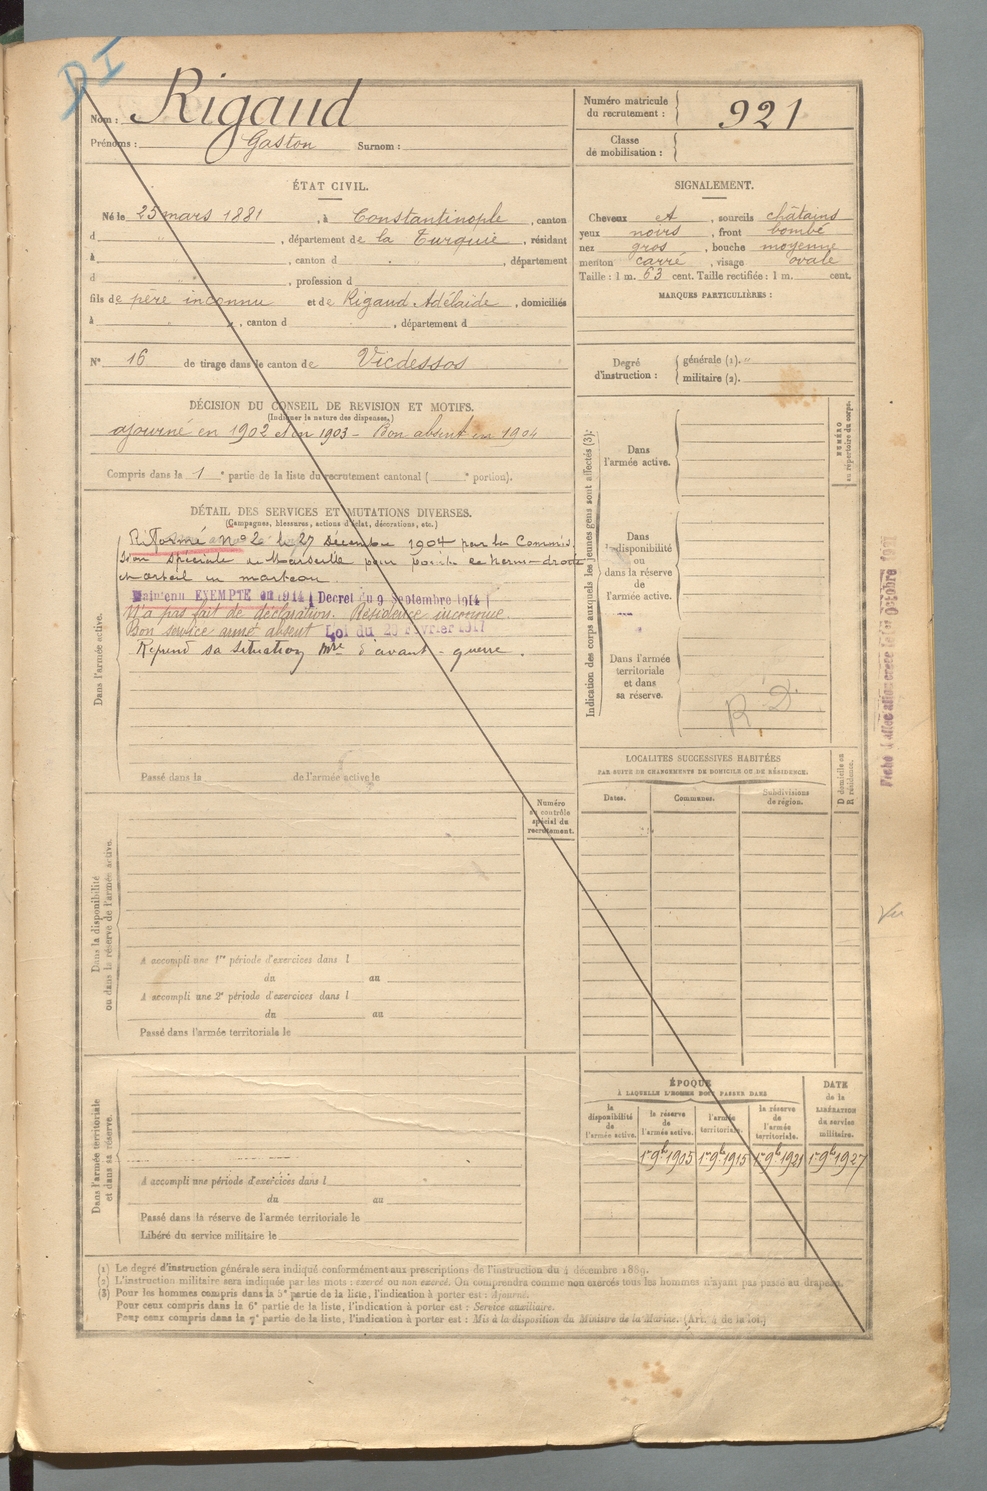 D I
Nom : Rigaud
Prénoms : Gaston Surnom :
Numéro matricule du recrutement : 921
Classe de mobilisation :
ÉTAT CIVIL.
Né le 25 mars 1881, à Constantinople, canton
d , département de la Turquie, résidant
à , canton d , département
d , profession d
fils de père inconnu et de Rigaud Adélaïde, domiciliés
à , canton d , département d
N° 16 de tirage dans le canton de Vicdessos
SIGNALEMENT.
Cheveux et , sourcils châtains
yeux noirs , front bombé
nez gros , bouche moyenne
menton carré , visage ovale
Taille : 1 m. 63 cent. Taille rectifiée : 1 m. cent.
MARQUES PARTICULIÈRES :
Degré d'instruction : générale (1). "
militaire (2).
DÉCISION DU CONSEIL DE REVISION ET MOTIFS.
(Indiquer la nature des dispenses.)
ajourné en 1902 et en 1903 - Bon absent en 1904
Compris dans la 1e partie de la liste du recrutement cantonal ( e portion).
DÉTAIL DES SERVICES ET MUTATIONS DIVERSES.
(Campagnes, blessures, actions d'éclat, décorations, etc.)
Dans l'armée active.
Réformé n° 2 le 27 décembre 1904 par la Commis
sion spéciale de Marseille pour pointe de hernie droite
et orteil en marteau.
Maintenu EXEMPTE en 1914 (Decret du 9 Septembre 1914)
N'a pas fait de déclaration. Résidence inconnue.
Bon service armé absent Loi du 20 Février 1917
Reprend sa situation mre d'avant-guerre.
Passé dans la de l'armée active le
Indication des corps auxquels les jeunes gens sont affectés (3).
NUMÉRO au répertoire du corps.
Dans l'armée active.
Dans la disponibilité ou dans la réserve de l'armée active.
Dans l'armée territoriale et dans sa réserve.
R. D.
Fiché
1er Octobre
Vu
LOCALITÉS SUCCESSIVES HABITÉES
PAR SUITE DE CHANGEMENTS DE DOMICILE OU DE RÉSIDENCE.
Dates. Communes. Subdivisions de région. D domicile ou R résidence.
Numéro au contrôle spécial du recrutement.
Dans la disponibilité ou dans la réserve de l'armée active.
A accompli une 1re période d'exercices dans l
du au
A accompli une 2e période d'exercices dans l
du au
Passé dans l'armée territoriale le
Dans l'armée territoriale et dans sa réserve.
A accompli une période d'exercices dans l
du au
Passé dans la réserve de l'armée territoriale le
Libéré du service militaire le
ÉPOQUE
À LAQUELLE L'HOMME DOIT PASSER DANS
la disponibilité de l'armée active.
la réserve de l'armée active.
l'armée territoriale.
la réserve de l'armée territoriale.
DATE de la LIBÉRATION du service militaire.
1er 9bre 1905 1er 9bre 1915 1er 9bre 1921 1er 9bre 1927
(1) Le degré d'instruction générale sera indiqué conformément aux prescriptions de l'instruction du 4 décembre 1889.
(2) L'instruction militaire sera indiquée par les mots : exercé ou non exercé. On comprendra comme non exercés tous les hommes n'ayant pas passé au drapeau.
(3) Pour les hommes compris dans la 5e partie de la liste, l'indication à porter est : Ajourné.
Pour ceux compris dans la 6e partie de la liste, l'indication à porter est : Service auxiliaire.
Pour ceux compris dans la 7e partie de la liste, l'indication à porter est : Mis à la disposition du Ministre de la Marine. (Art. 4 de la loi.)